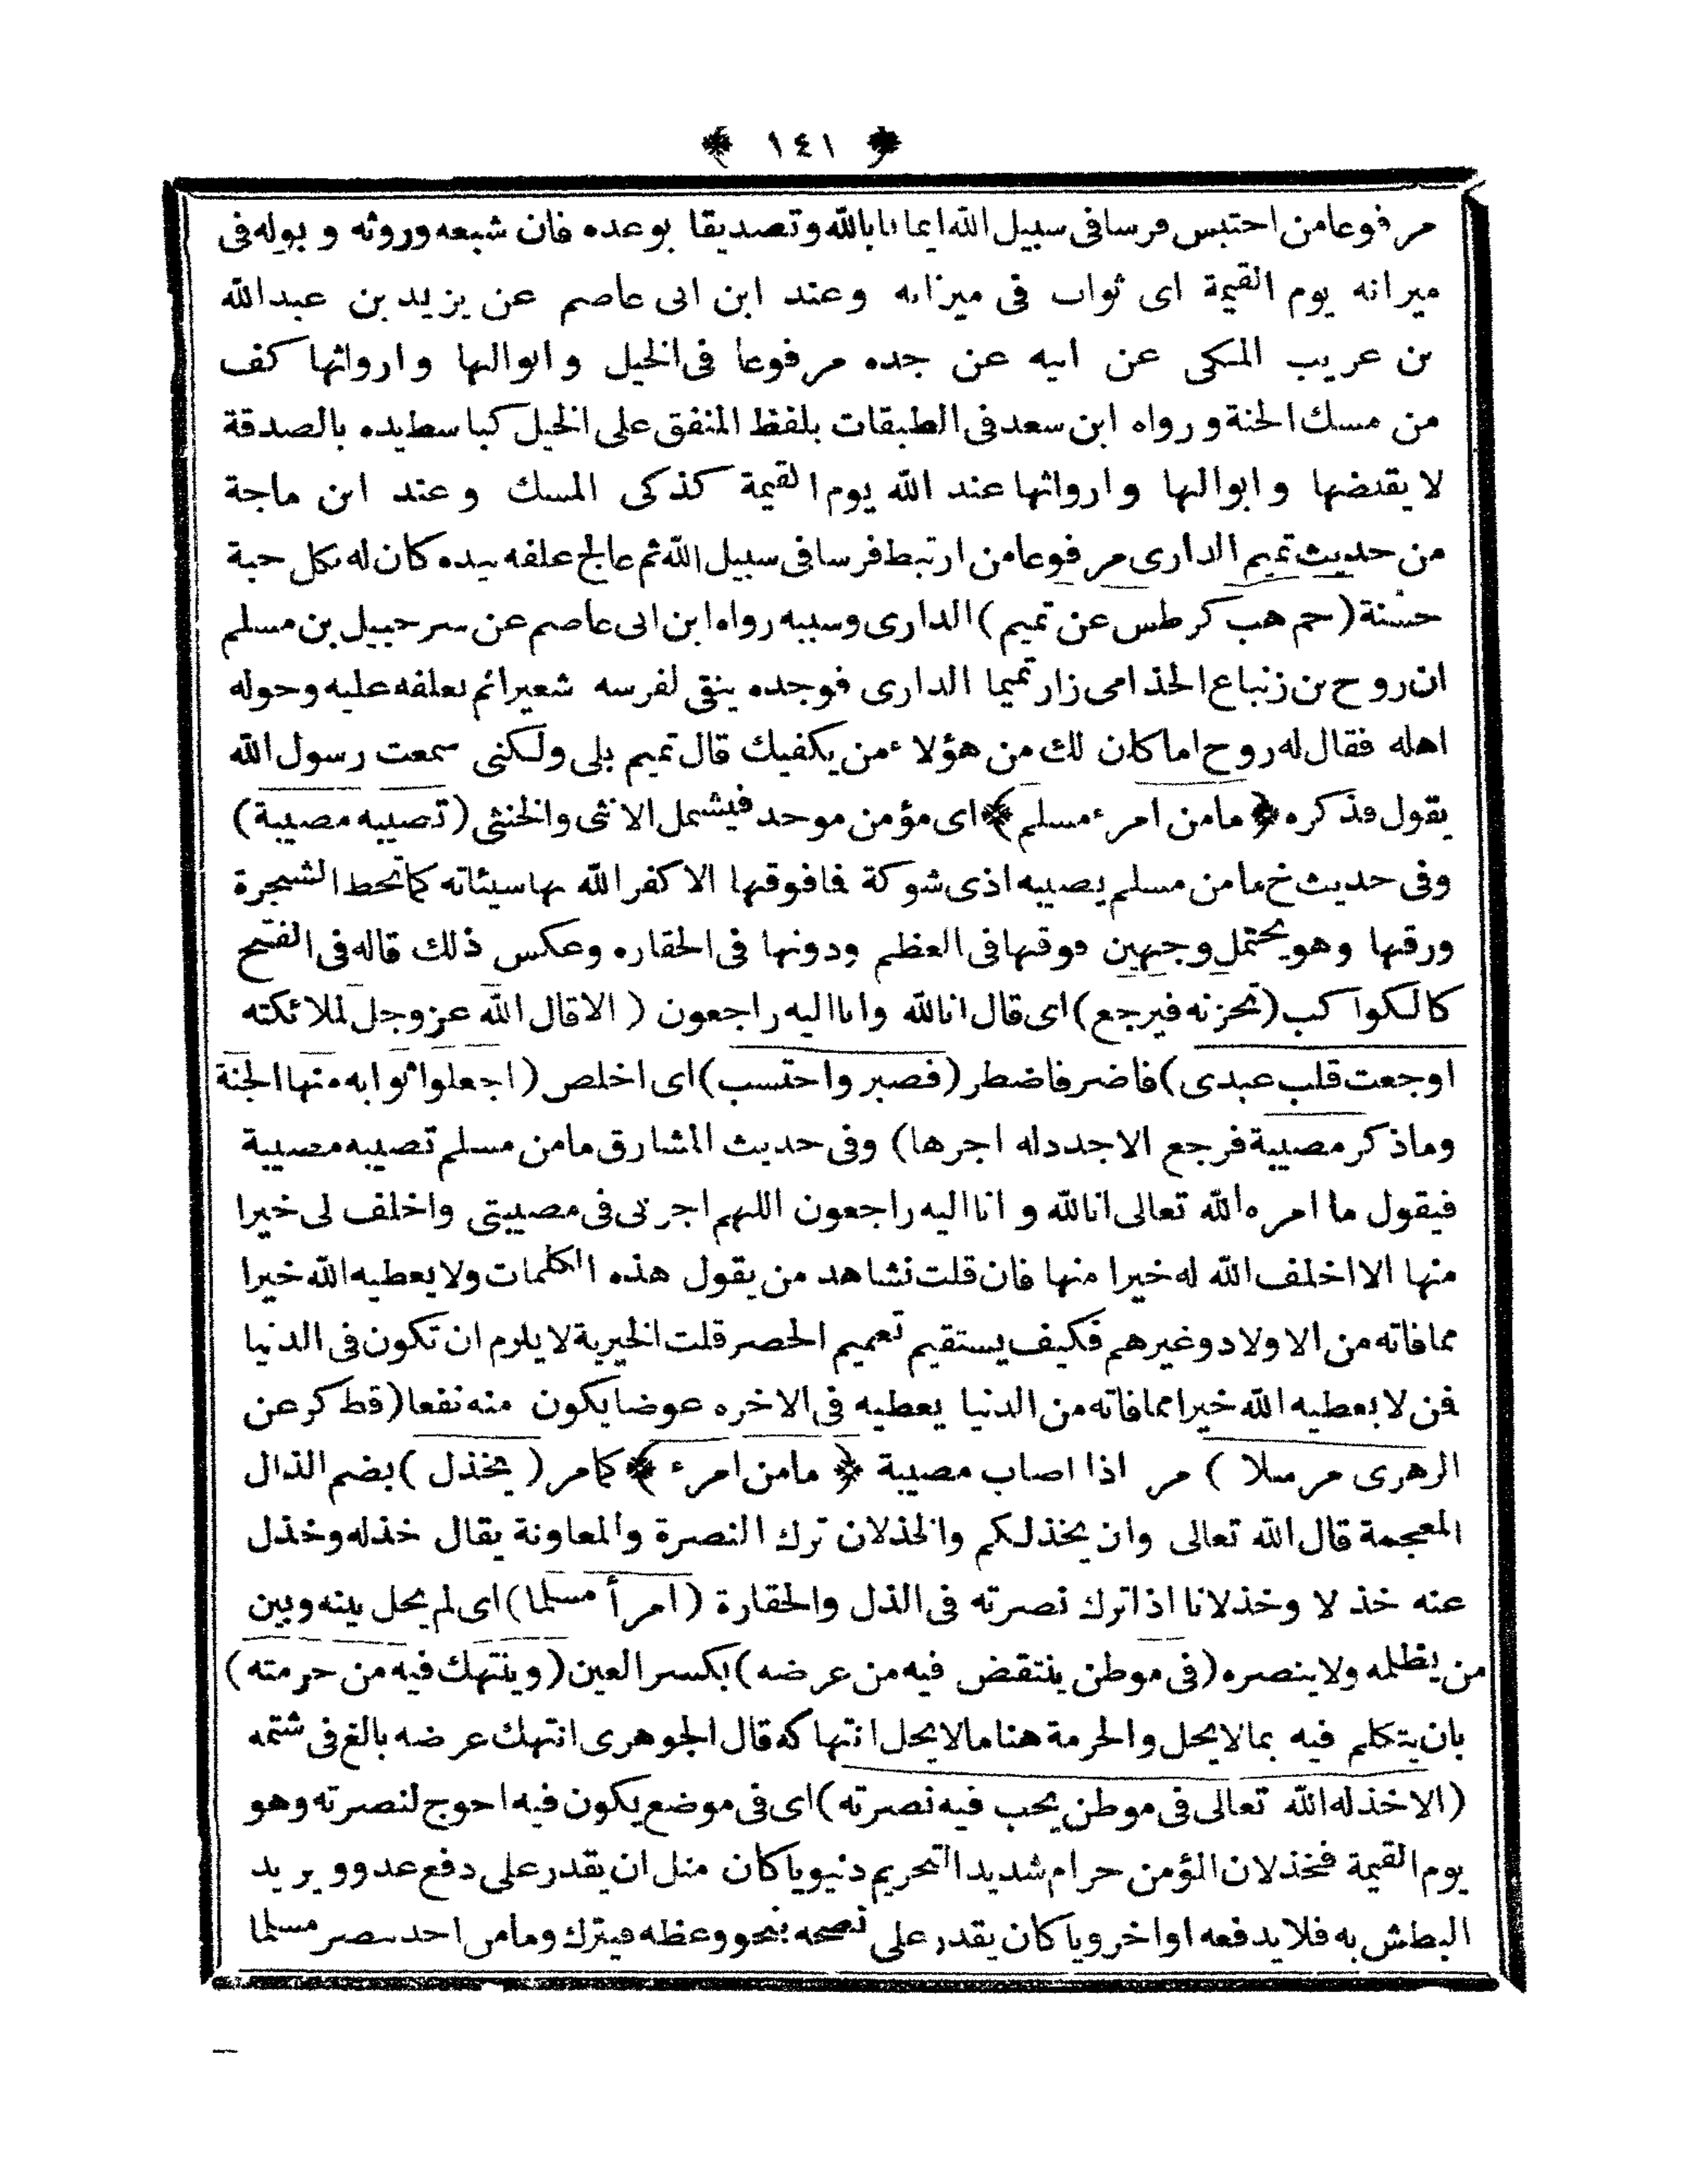 ﴿ ١٤١ ﴾
مرفوعا من احتبس فرسا فى سبيل الله ايمانا بالله وتصديقا بوعده فان شبعه وروثه و بوله فى
ميزانه يوم القيمة اى ثواب فى ميزانه وعند ابن ابى عاصم عن يزيد بن عبدالله
بن عريب المكى عن ابيه عن جده مرفوعا فى الخيل وابوالها وارواثها كف
من مسك الجنة ورواه ابن سعد فى الطبقات بلفظ المنفق على الخيل كباسط يده بالصدقة
لا يقبضها وابوالها وارواثها عند الله يوم القيمة كذكى المسك وعند ابن ماجة
من حديث تميم الدارى مرفوعا من ارتبط فرسا فى سبيل الله ثم عالج علفه بيده كان له بكل حبة
حسنة (حم هب كر طس عن تميم) الدارى وسببه رواه ابن ابى عاصم عن سرحبيل بن مسلم
ان روح بن زنباع الجذامى زار تميما الدارى فوجده ينقى لفرسه شعيرا ثم يعلفه عليه وحوله
اهله فقال له روح اما كان لك من هؤلاء من يكفيك قال تميم بلى ولكنى سمعت رسول الله
يقول فذكره ﴿ ما من امرء مسلم ﴾ اى مؤمن موحد فيشمل الانثى والخنثى (تصيبه مصيبة)
وفى حديث خ ما من مسلم يصيبه اذى شوكة فما فوقها الا كفر الله بها سيئاته كما تحط الشجرة
ورقها وهو يحتمل وجهين فوقها فى العظم ودونها فى الحقاره وعكس ذلك قاله فى الفتح
كالكواكب (تحزنه فيرجع) اى قال انا لله وانا اليه راجعون (الا قال الله عز وجل لملائكته
اوجعت قلب عبدى) فاضر فاضطر (فصبر واحتسب) اى اخلص (اجعلوا ثوابه منها الجنة
وما ذكر مصيبة فرجع الا جدد له اجرها) وفى حديث المشارق ما من مسلم تصيبه مصيبة
فيقول ما امره الله تعالى انا لله و انا اليه راجعون اللهم اجرنى فى مصيبتى واخلف لى خيرا
منها الا اخلف الله له خيرا منها فان قلت نشاهد من يقول هذه الكلمات ولا يعطيه الله خيرا
مما فاته من الاولاد وغيرهم فكيف يستقيم تعميم الحصر قلت الخيرية لا يلزم ان تكون فى الدنيا
فمن لا يعطيه الله خيرا مما فاته من الدنيا يعطيه فى الاخره عوضا يكون منه نفعا (قط كر عن
الزهرى مرسلا ) مر اذا اصاب مصيبة ﴿ ما من امرء ﴾ كما مر ( يخذل ) بضم الذال
المعجمة قال الله تعالى وان يخذلكم والخذلان ترك النصرة والمعاونة يقال خذله وخذل
عنه خذلا وخذلانا اذا ترك نصرته فى الذل والحقارة (امرأ مسلما) اى لم يحل بينه وبين
من يظلمه ولا ينصره (فى موطن ينتقض فيه من عرضه) بكسر العين (وينتهك فيه من حرمته)
بان يتكلم فيه بما لا يحل والحرمة هنا ما لا يحل انتهاكه قال الجوهرى انتهك عرضه بالغ فى شتمه
(الا خذله الله تعالى فى موطن يحب فيه نصرته) اى فى موضع يكون فيه احوج لنصرته وهو
يوم القيمة فخذلان المؤمن حرام شديد التحريم دنيويا كان مثل ان يقدر على دفع عدو ويريد
البطش به فلا يدفعه او اخرويا كان يقدر على نصحه بنحو وعظه فيترك وما من احد ينصر مسلما